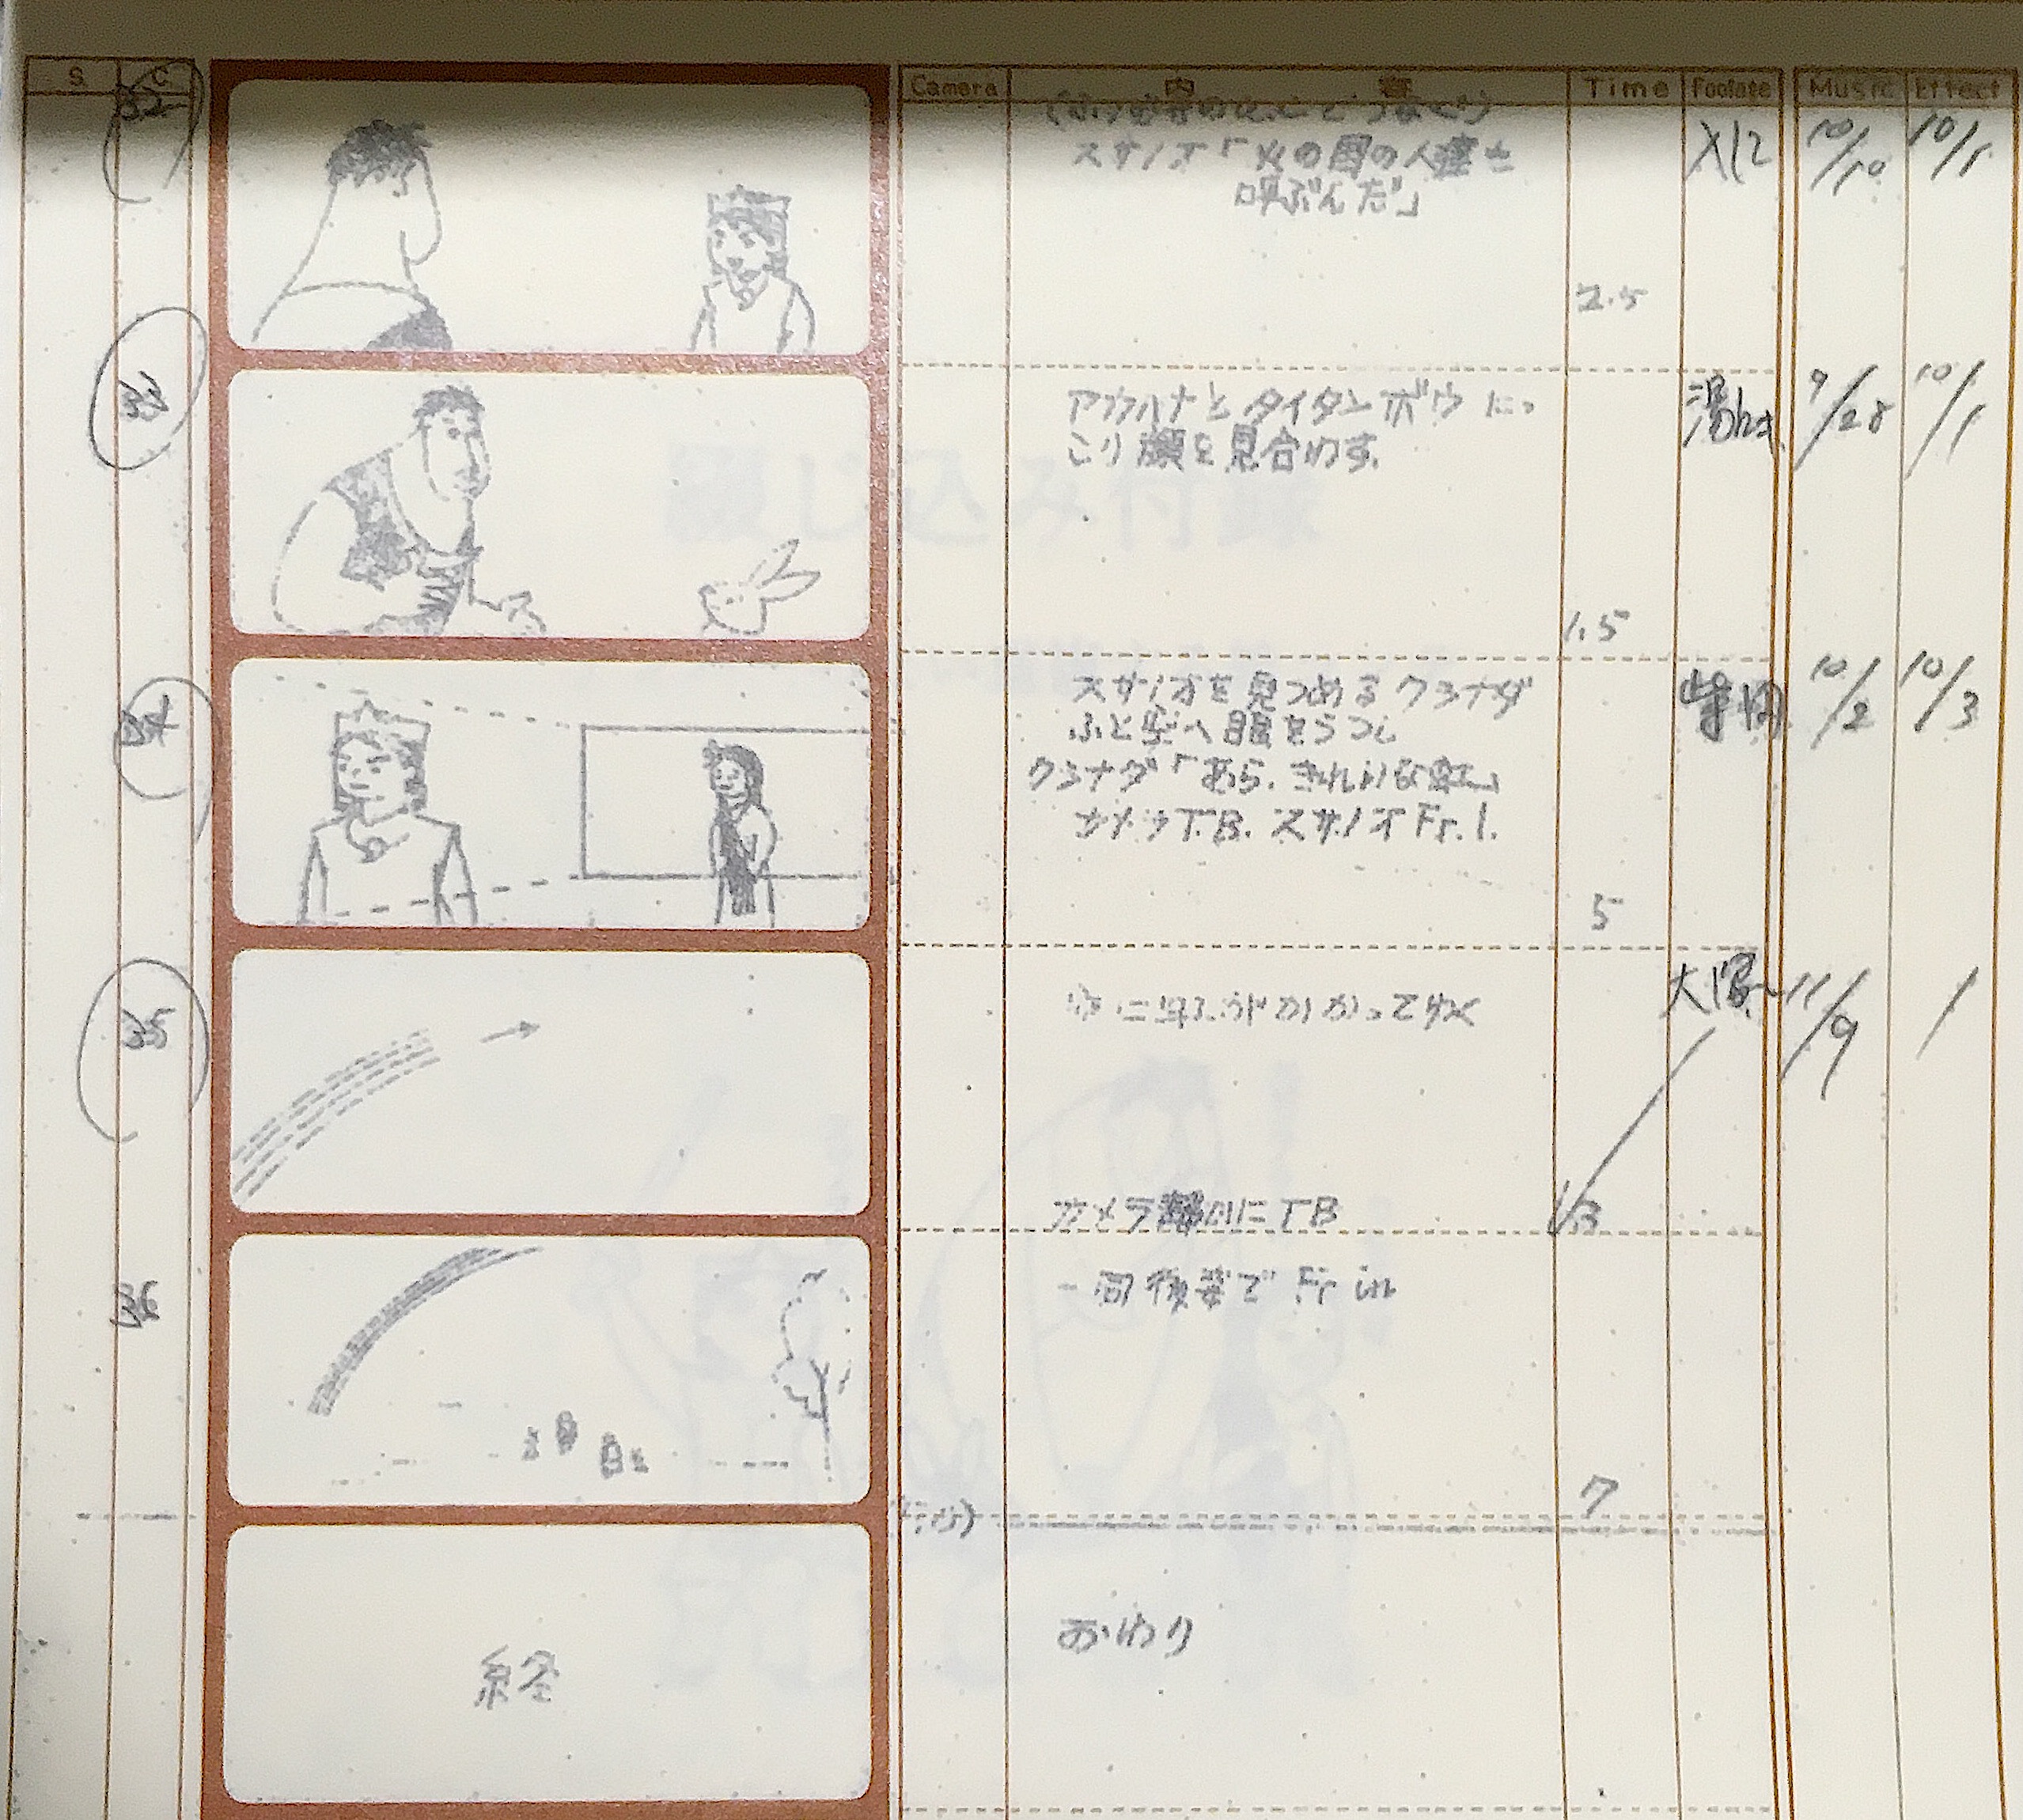 S C Camera 内容 Time Footage Music Effect
32
スサノオ「火の国の人達も
呼ぶんだ」
2.5
10/10 10/1
33
アカハナとタイタンボウ にっ
こり顔を見合わす。
1.5
9/28 10/1
34
スサノオを見つめるクシナダ
ふと空へ眼をうつし
クシナダ「あら、きれいな虹」
カメラT.B. スサノオFr.I.
5
10/2 10/3
35
空に虹がかかってゆく
大塚 11/9
カメラ TB
3
36
一同後姿で Fr in
7
終
おわり